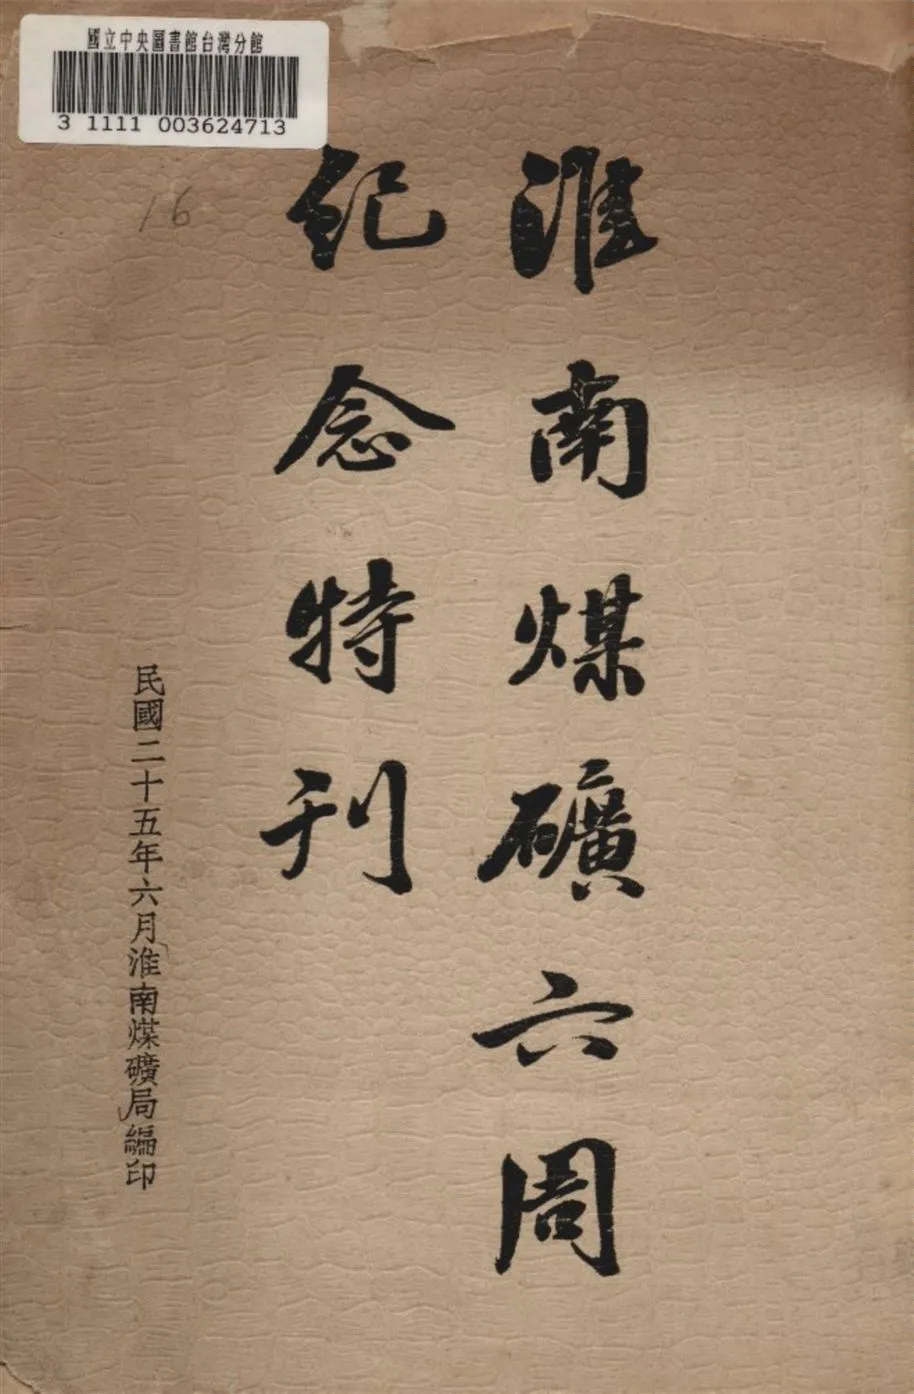 國立中央圖書館台灣分館
3 1111 003624713
16
淮南煤礦六周
紀念特刊
民國二十五年六月淮南煤礦局編印